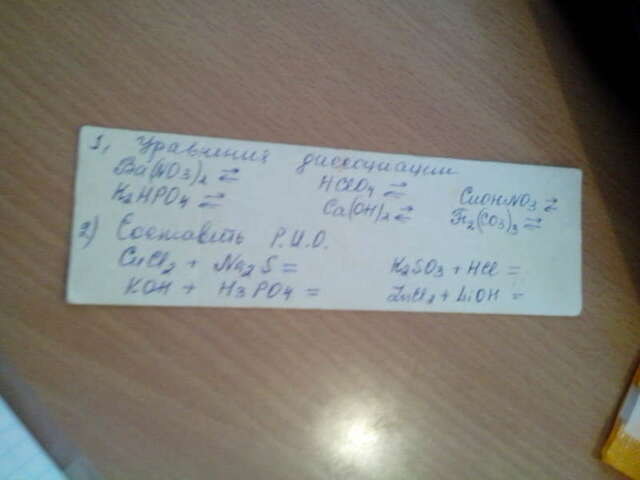 1, Уравнения диссоциации
Ba(NO3)2 ⇄ HClO4 ⇄ CuOHNO3 ⇄
K2HPO4 ⇄ Ca(OH)2 ⇄ Fe2(CO3)3 ⇄
2) Составить Р.И.О.
CuCl2 + Na2S = K2SO3 + HCl =
KOH + H3PO4 = ZnCl2 + LiOH =